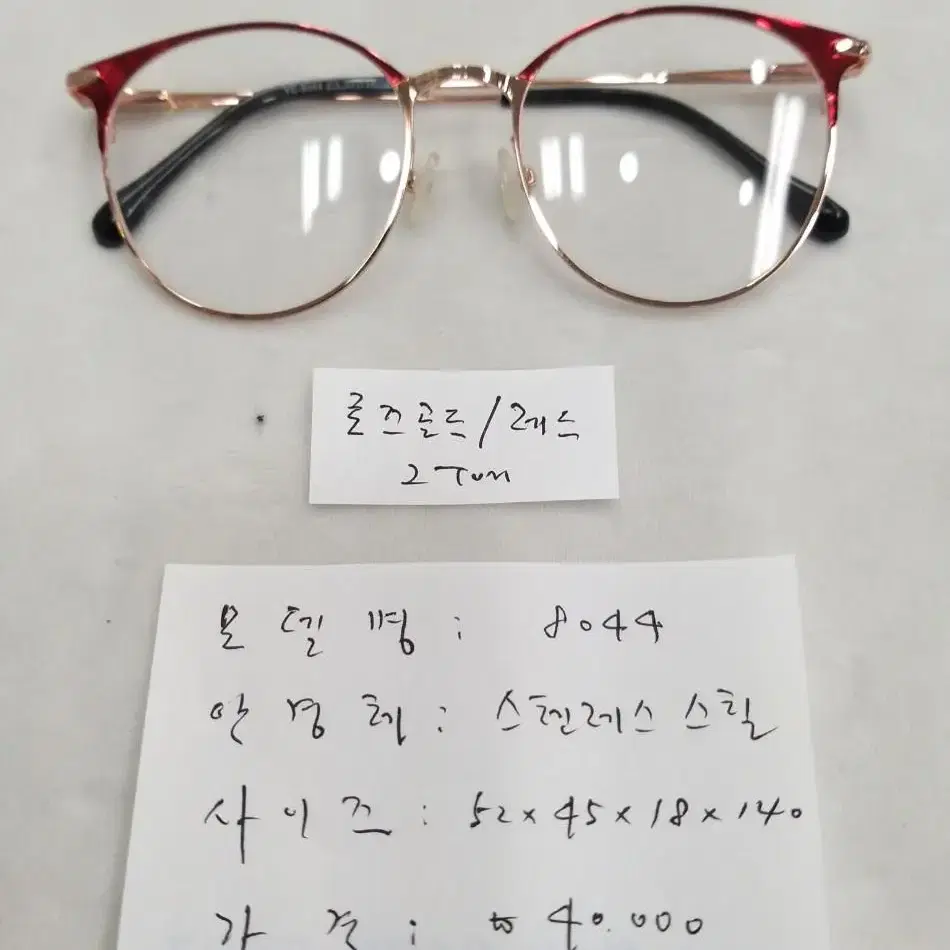 로즈골드/레드
2 Ton
모델명: 8044
안경체: 스텐레스 스틸
사이즈: 52x45x18x140
가격: ₩ 40.000